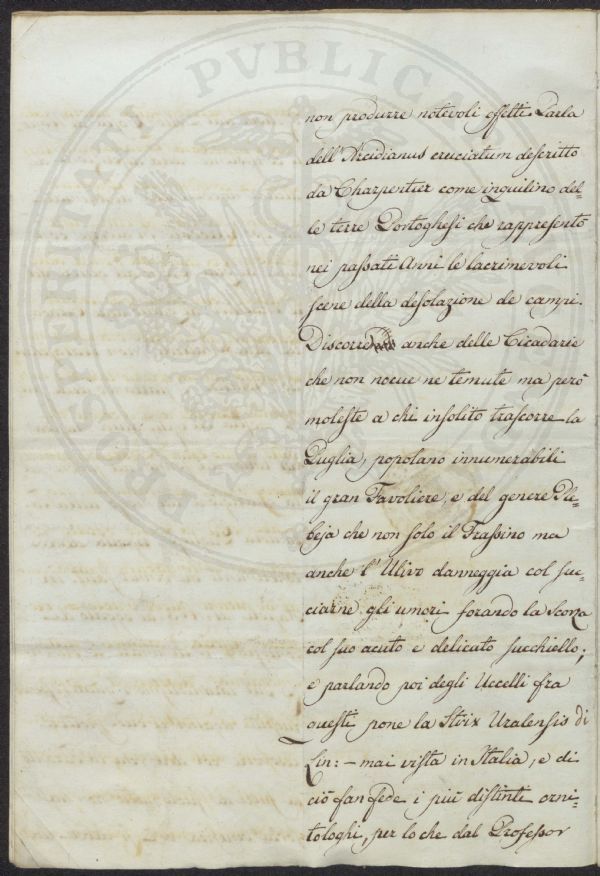 PROSPERITATI PVBLICAE
non produrre notevoli effetti Parla
dell'Arcidianus cruciatum descritto
da Charpentier come inquilino del=
le terre Portoghesi che rappresentò
nei passati Anni le lacrimevoli
scene della desolazione de campi.
Discorre anche delle Cicadarie
che non nocue ne temute ma però
moleste a chi insolito trascorre la
Puglia, popolano innumerabili
il gran Tavoliere, e del genere Ple=
beja che non solo il Frassino ma
anche l'Ulivo danneggia col suc=
ciarne gli umori forando la Scorza
col suo acuto e delicato succhiello;
e parlando poi degli Uccelli fra
questi pone la Strix Uralensis di
Lin: – mai vista in Italia, e di
ciò fan fede i più distinti orni=
tologhi, per lo che dal Professor